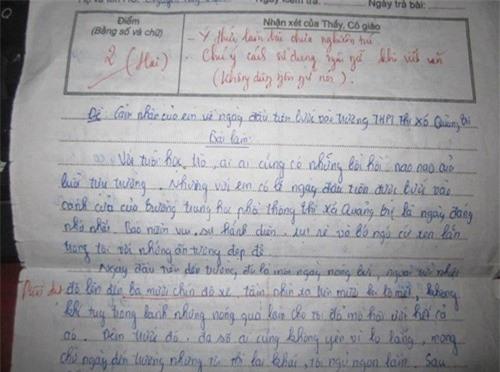 Ngày kiểm tra: Ngày trả bài:
Điểm
(Bằng số và chữ)
Nhận xét của Thầy, Cô giáo
2 (Hai)
- Ý thức làm bài chưa nghiêm túc
- Chú ý cách sử dụng ngôn ngữ khi viết văn
(không dùng ngôn ngữ nói).
Đề: Cảm nhận của em về ngày đầu tiên bước vào trường THPT Thị Xã Quảng Trị
Bài làm:
Với tuổi học trò, ai ai cũng có những bồi hồi nao nao của
buổi tựu trường. Nhưng với em có lẽ ngày đầu tiên bước vào
cánh cửa của trường trung học phổ thông thị xã Quảng Trị là ngày đáng
nhớ nhất. Bao niềm vui, sự hãnh diện, bỡ ngỡ cứ xen lẫn
trong tôi với những ấn tượng đẹp đẽ
Ngày đầu tiên đến trường, đó là một ngày nóng bức, ngoài trời nhiệt
độ lên đến ba mươi chín độ xê, tầm nhìn xa trên mười ki lô mét, không
khí tuy trong lành nhưng nóng quá làm cho tôi đổ mồ hôi ướt hết cả
áo. Đêm trước đó, đa số ai cũng không yên vì lo lắng, mong
chờ ngày đến trường nhưng tôi thì lại khác, tôi ngủ ngon lành. Sau